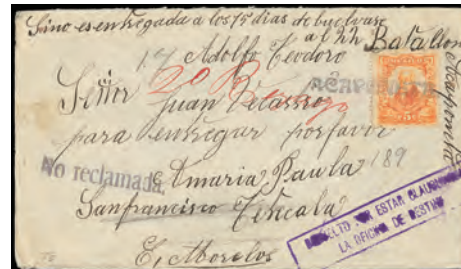 Sino es entregada a los 15 dias debuelvase
al 22 Batallon
Acaponeta
17 Adolfo Teodoro
2º
ACAPONETA
Señor Juan Velasco
para entregar porfavor
No reclamada.
Amaria Paula 189
Sanfrancisco
E, Morelos
DEVUELTO POR ESTAR CLAUSURADA
LA OFICINA DE DESTINO